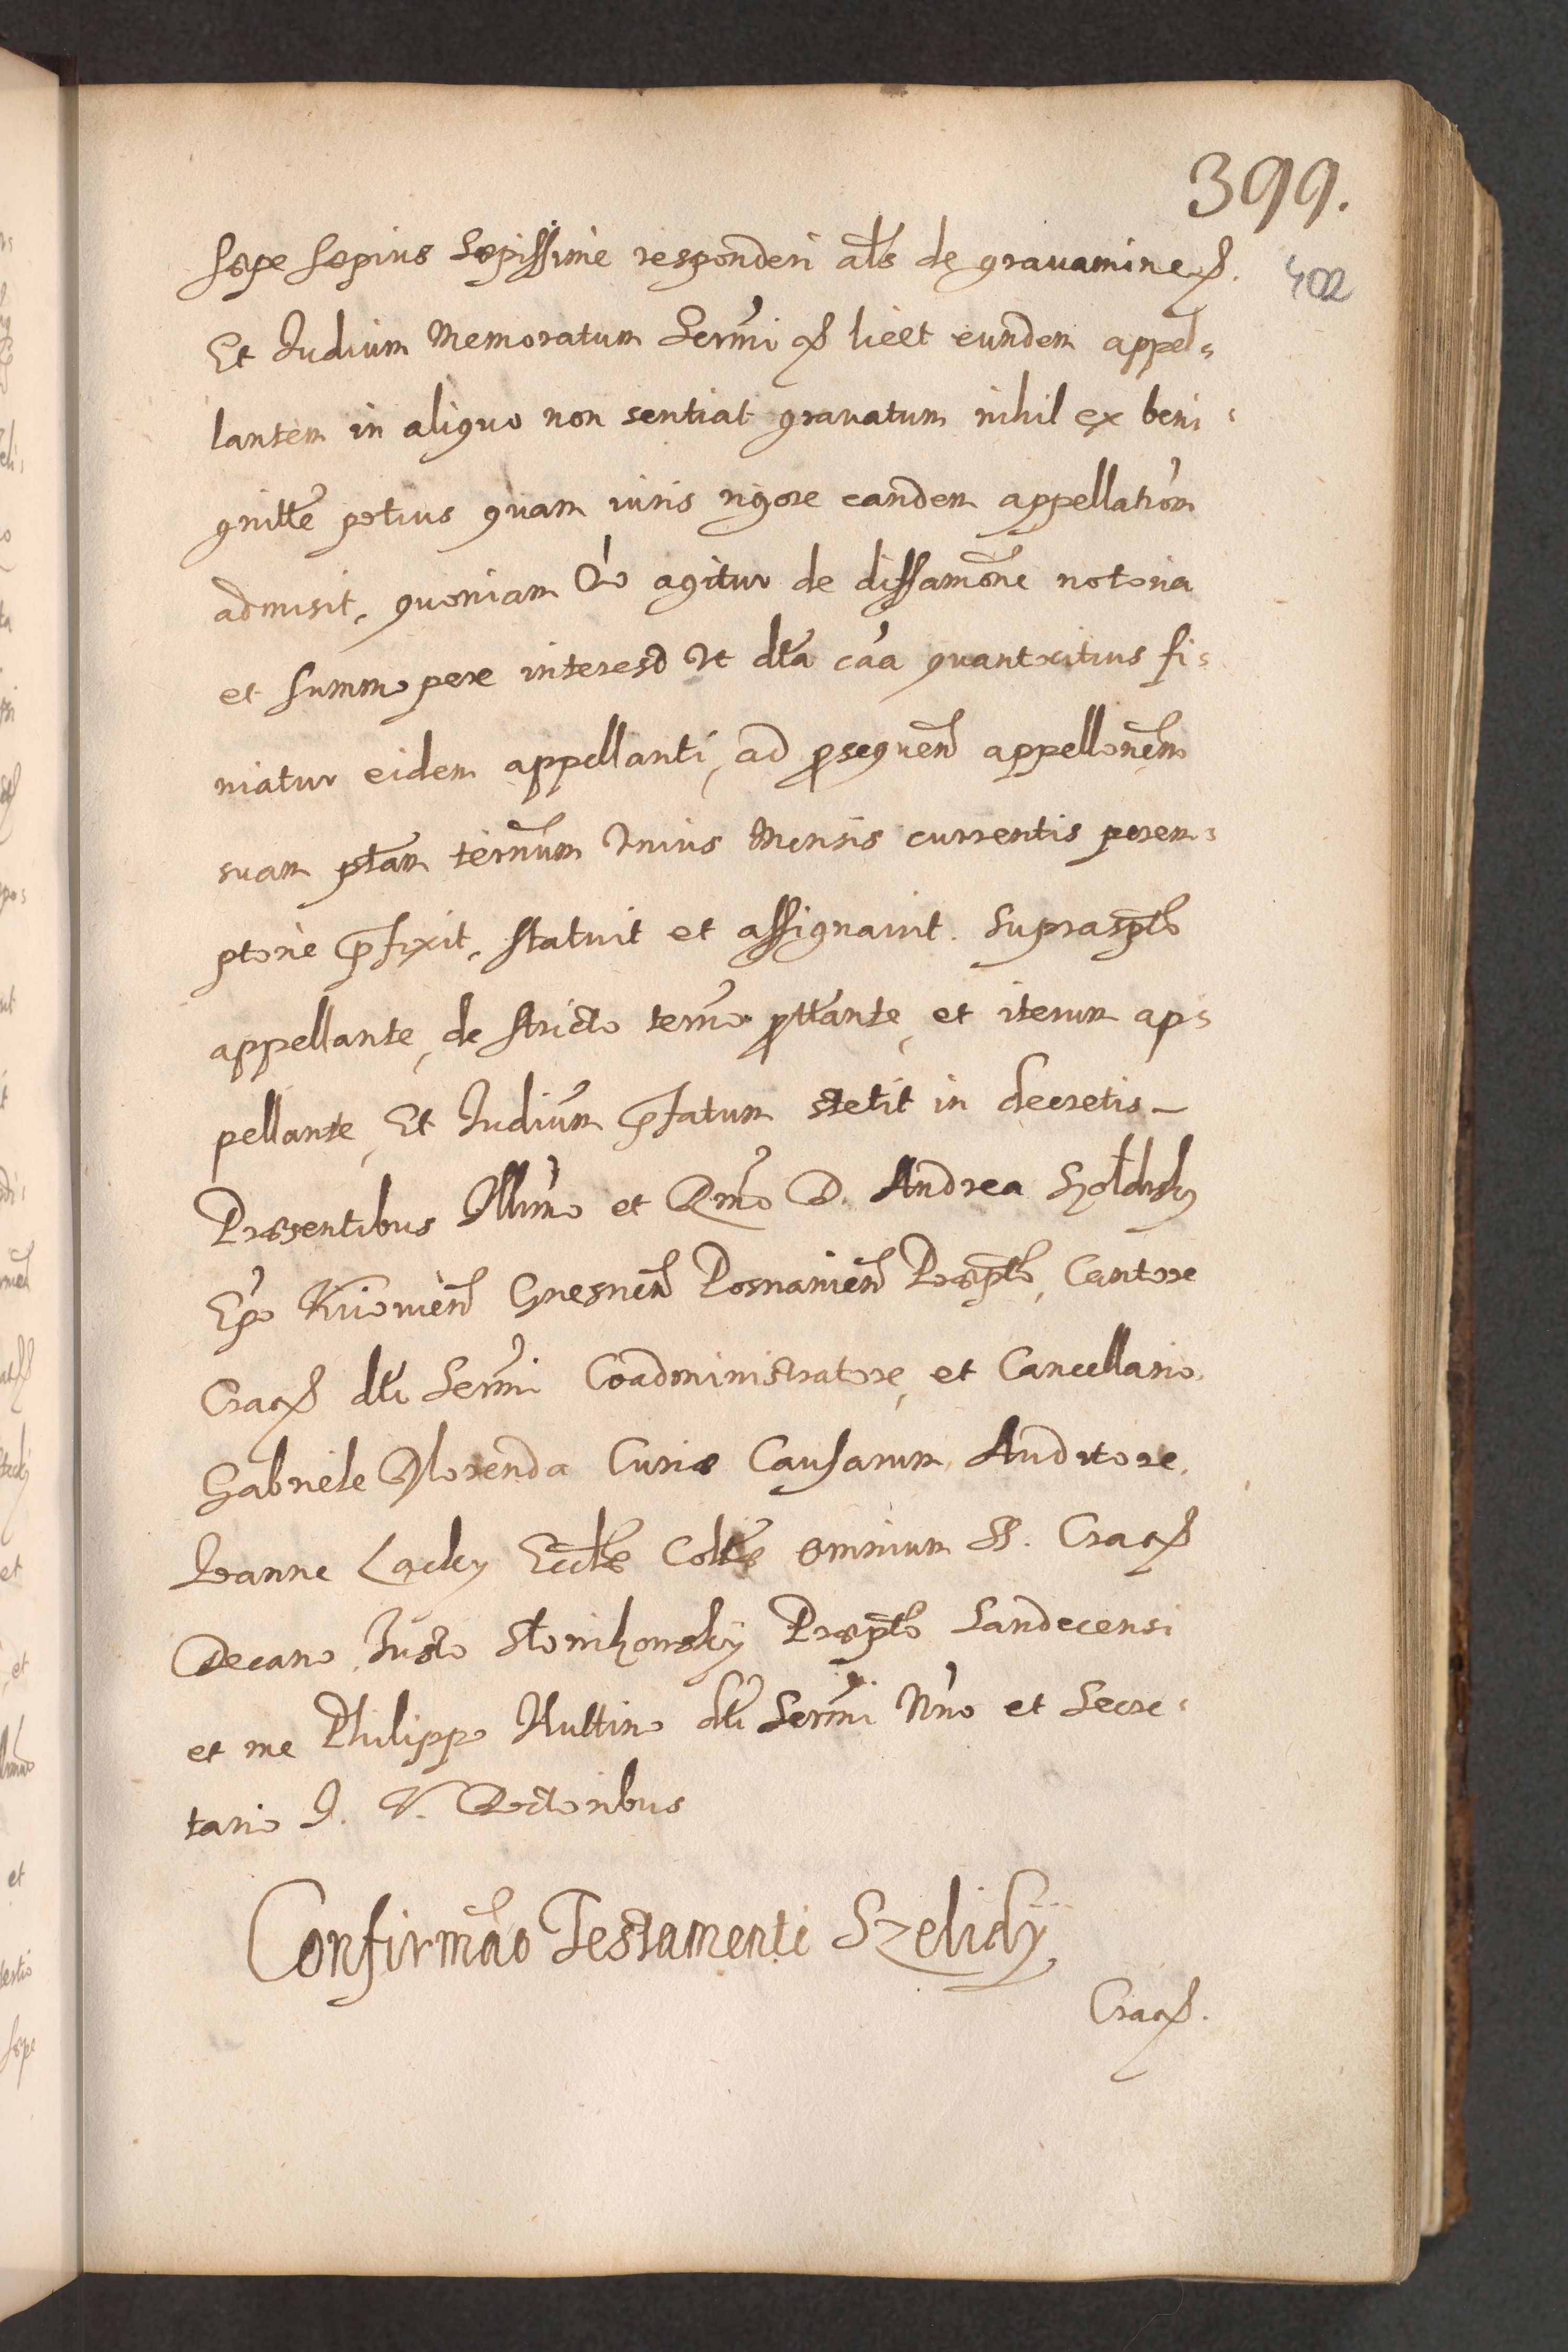 399.
402
sæpe sæpius sæpissime responderi als de gravamine etc.
Et Iudium Memoratum Sermi etc licet eundem appel-
lantem in aliquo non sentiat gravatum nihil ex beni-
gnitte potius quam iuris rigore eandem appellatiom
admisit, quoniam vo agitur de diffamone notoria
et summopere interest vt dta caa quantocitius fi-
niatur eidem appellanti, ad prosequend appellonem
suam ptam termum vnius Mensis currentis perem-
ptorie præfixit, statuit et assignavit. Supraspto
appellante, de stricto termo prttante, et iterum ap-
pellante, Et Iudium præfatum stetit in decretis —
Præsentibus Illmo et Rmo D. Andrea Szoldrsky
Epo Kiiouien Gnesnen Posnanien Præpto, Cantore
Crac dti Sermi Coadministratore, et Cancellario.
Gabriele Morenda Curiæ Causarum Auditore,
Ioanne Lącky Ecclæ Coltæ omnium SS. Crac
Decano, Iusto Słowikowsky Præpto Sandecensi
et me Philippo Huttino dti Sermi Nrio et Secre-
tario I. V. Doctoribus
Confirmao Testamenti Szelidÿ
Crac.